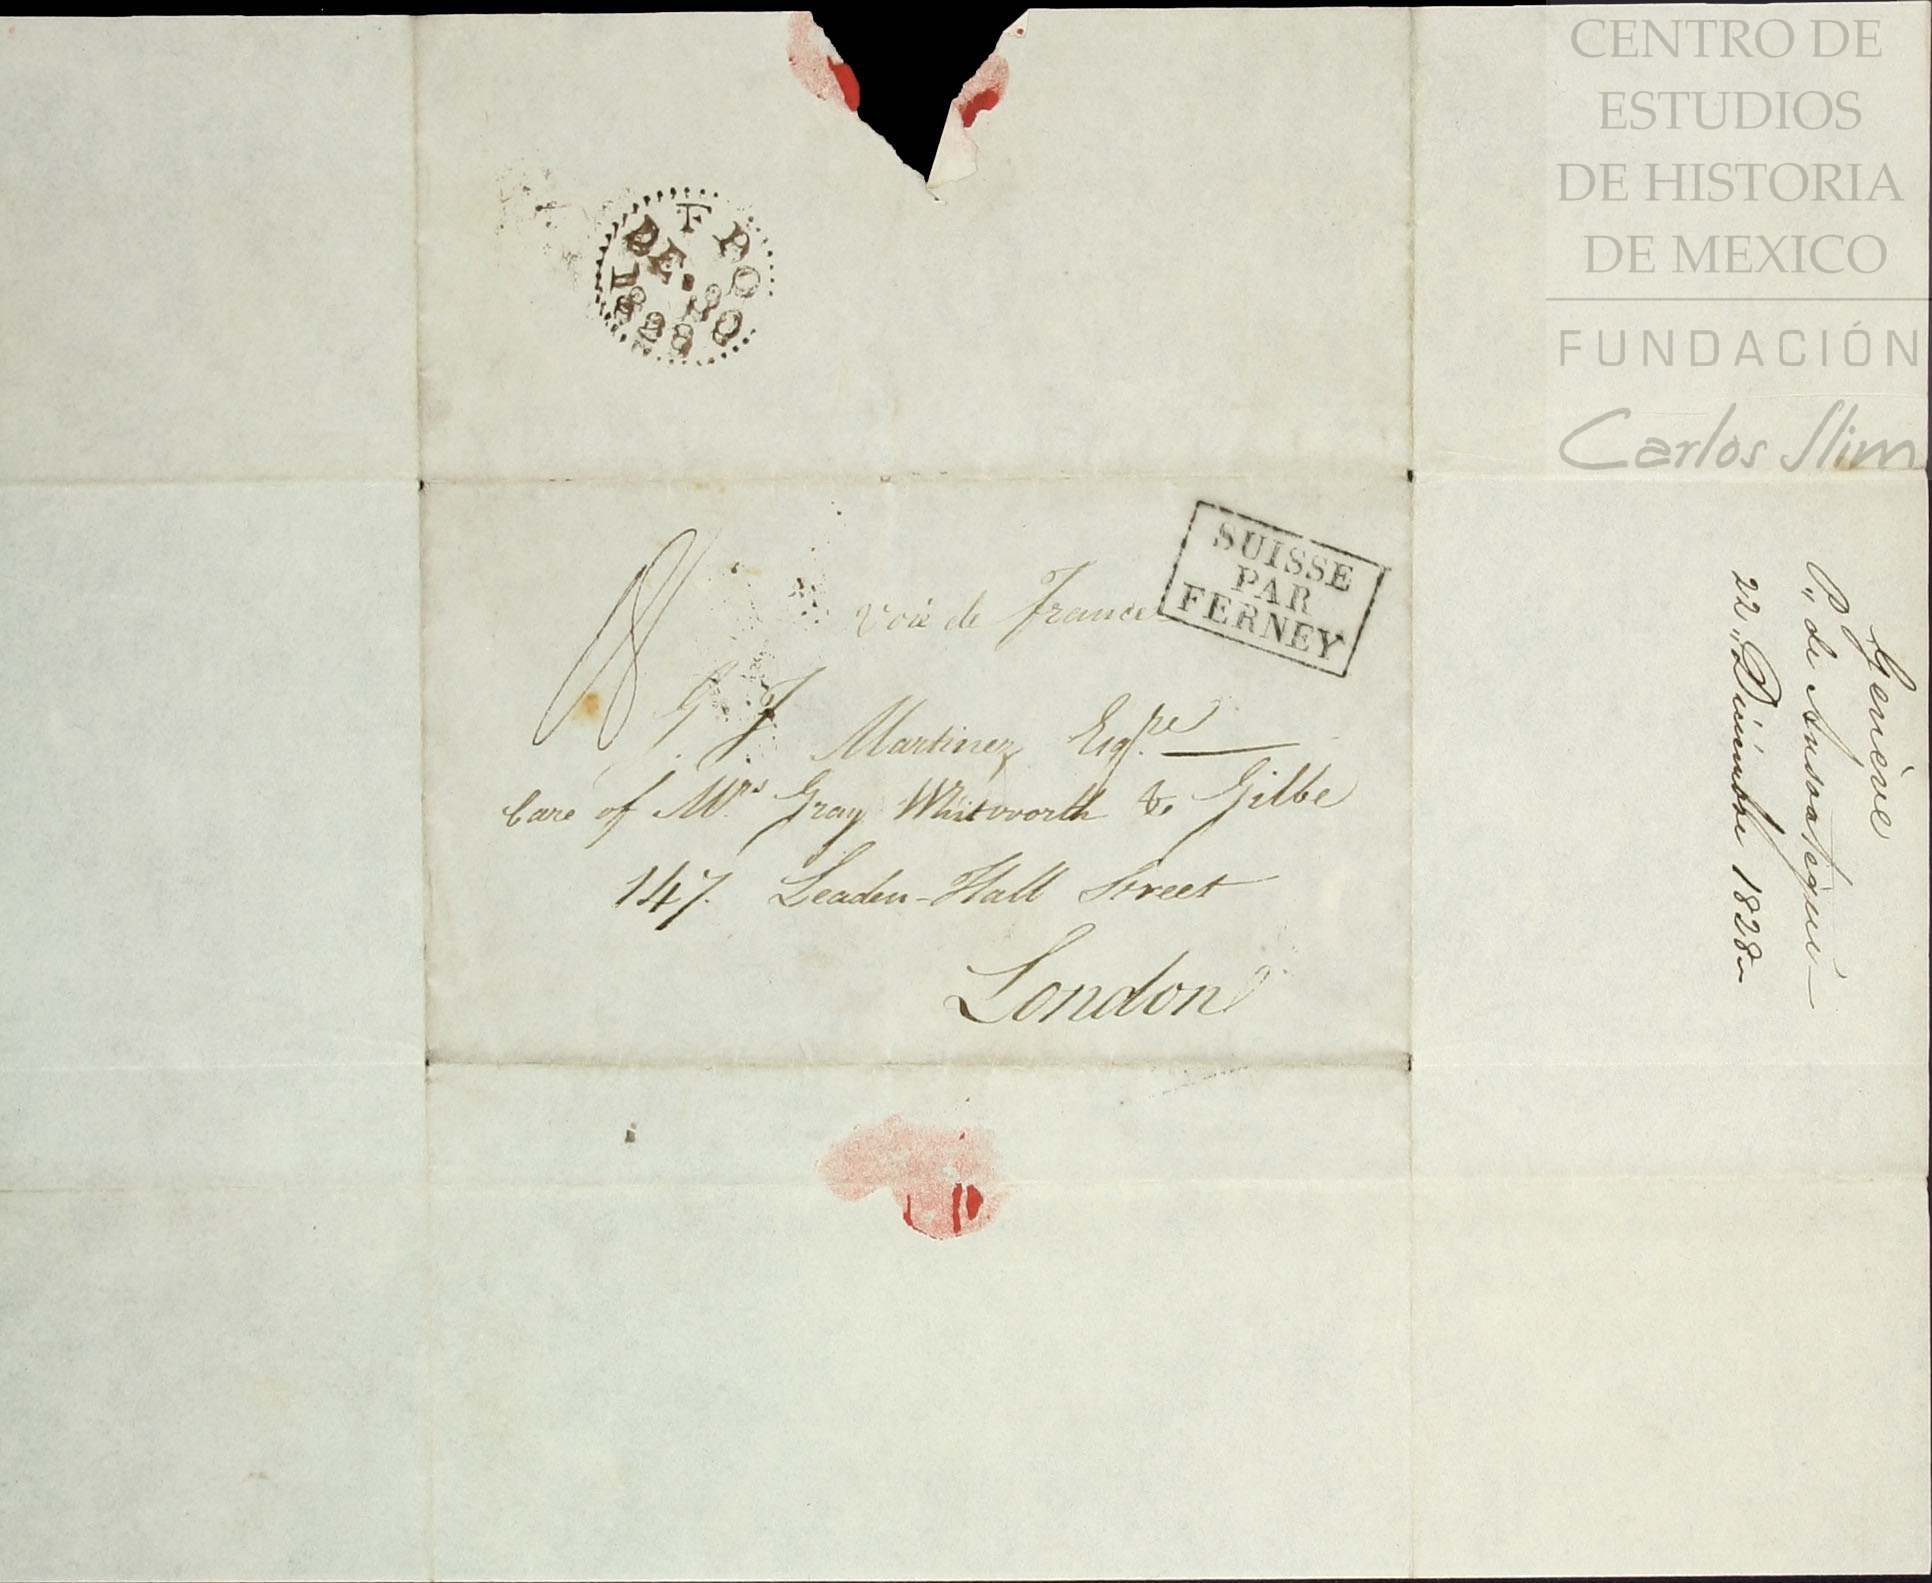 CENTRO DE
ESTUDIOS
DE HISTORIA
DE MEXICO
FUNDACIÓN
Carlos Slim
F PO
DE. 30
1828
SUISSE
PAR
FERNEY
Voie de France
G. J. Martinez Esq.re
Care of M.rs Gray Whitworth & Gilbe
147. Leaden-Hall Street
London
Genève
P,, de Ansoategui
22,, Diciembre 1828